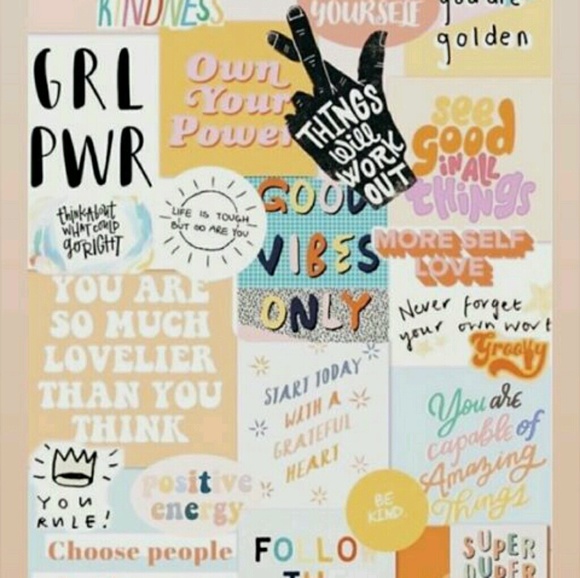 KINDNESS
YOURSELF
you are
golden
GRL
PWR
Own
Your
Power
THINGS
Will
WORK
OUT
see
good
IN ALL
things
think about
WHAT COULD
go RIGHT
LIFE IS TOUGH
BUT SO ARE YOU
GOOD
VIBES
ONLY
MORE SELF
LOVE
Never forget
your own wort
Groovy
YOU ARE
SO MUCH
LOVELIER
THAN YOU
THINK
START TODAY
WITH A
GRATEFUL
HEART
You are
capable of
Amazing
Things
YOU
RULE!
positive
energy
BE
KIND.
Choose people
FOLLO
SUPER
DUPER